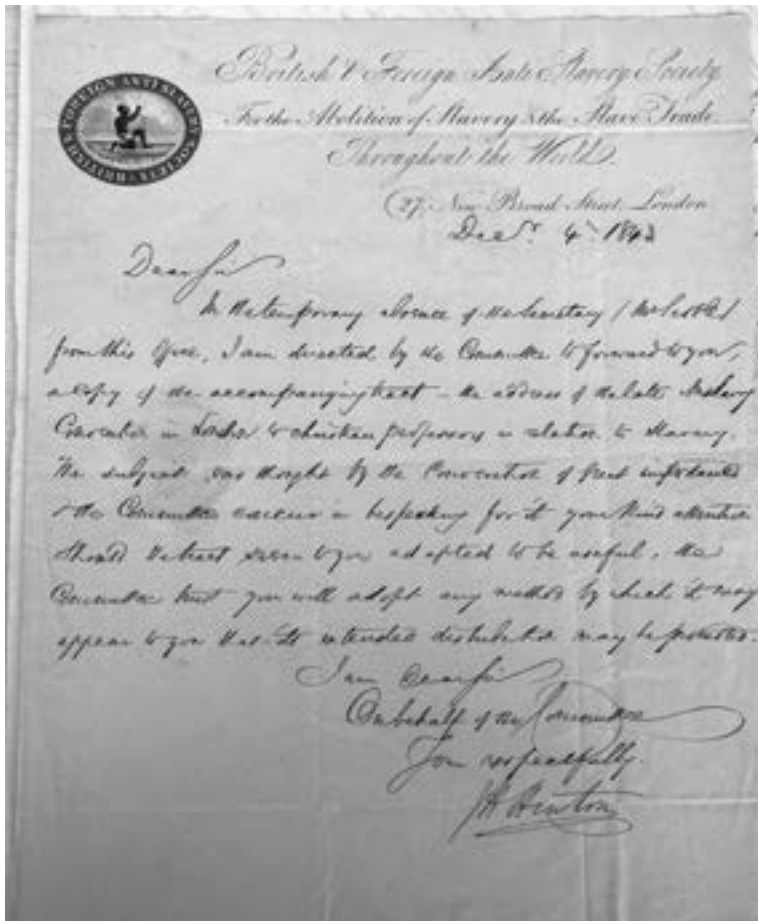 BRITISH & FOREIGN ANTI SLAVERY SOCIETY
British & Foreign Anti Slavery Society
For the Abolition of Slavery & the Slave Trade
Throughout the World.
27, New Broad Street, London
Decr. 4th 1843
Dear Sir
In the temporary absence of the Secretary (Mr Scoble)
from this Office, I am directed by the Committee to forward to you,
a copy of the accompanying tract – the address of the late Anti Slavery
Convention in London to christian professors in relation to Slavery.
The subject was thought by the Convention of great importance
& the Committee concur in bespeaking for it your kind attention
Should the tract seem to you adapted to be useful, the
Committee trust you will adopt any method by which it may
appear to you that its extended distribution may be promoted.
I am Dear Sir
On behalf of the Committee
Your respectfully.
J H Hinton